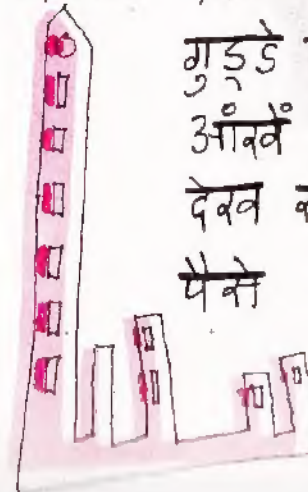 गुड्डे
आंखें
देख
पैसे